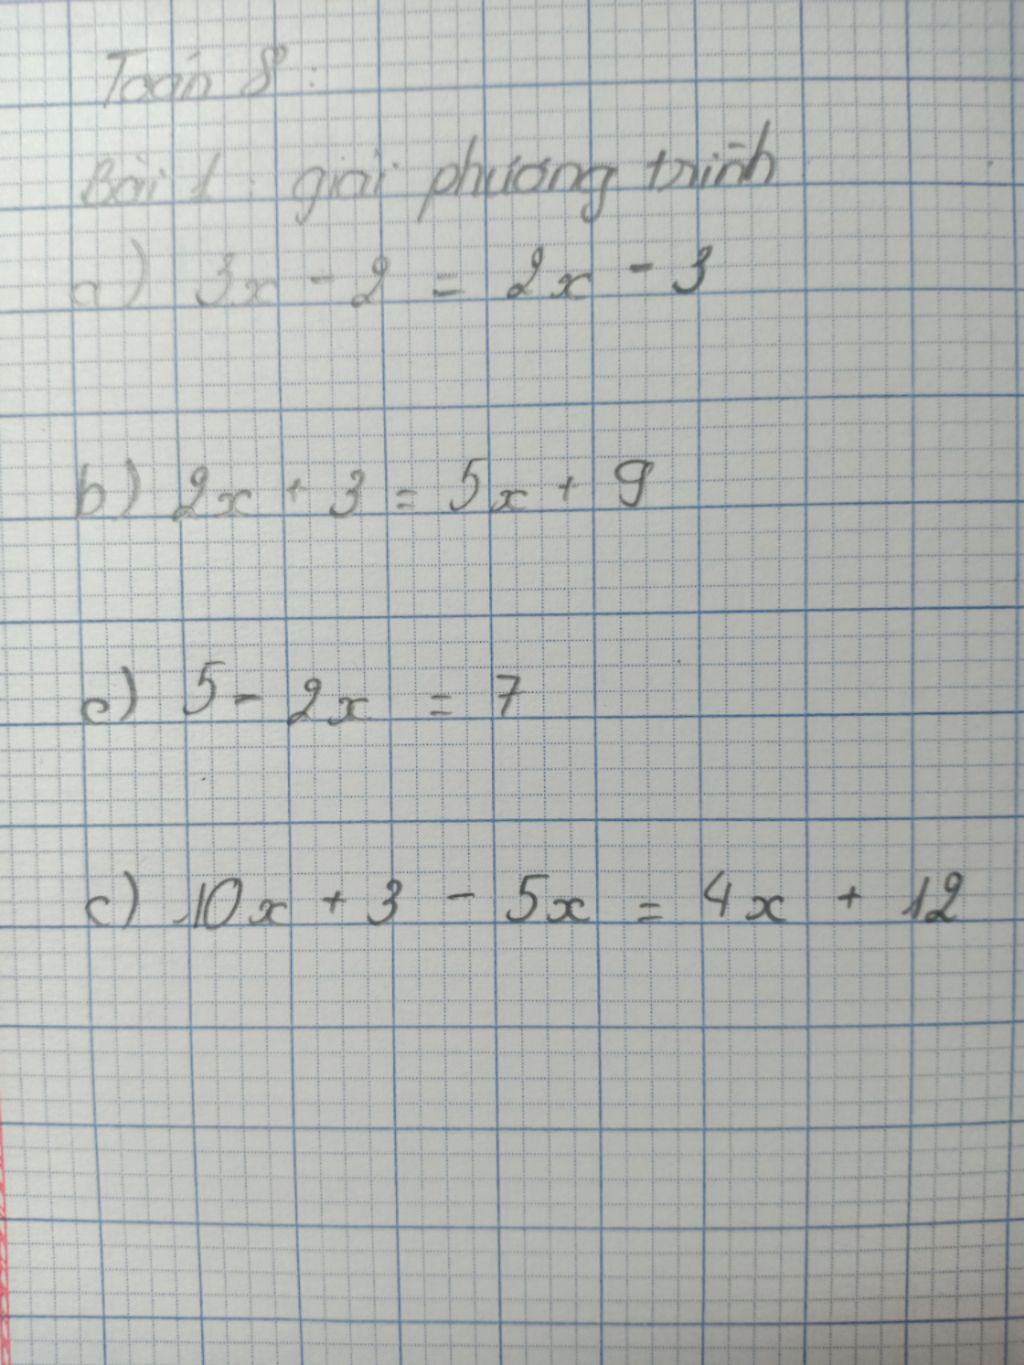 Toán 8:
Bài 1: giải phương trình
a) 3x - 2 = 2x - 3
b) 2x + 3 = 5x + 9
c) 5 - 2x = 7
c) 10x + 3 - 5x = 4x + 12